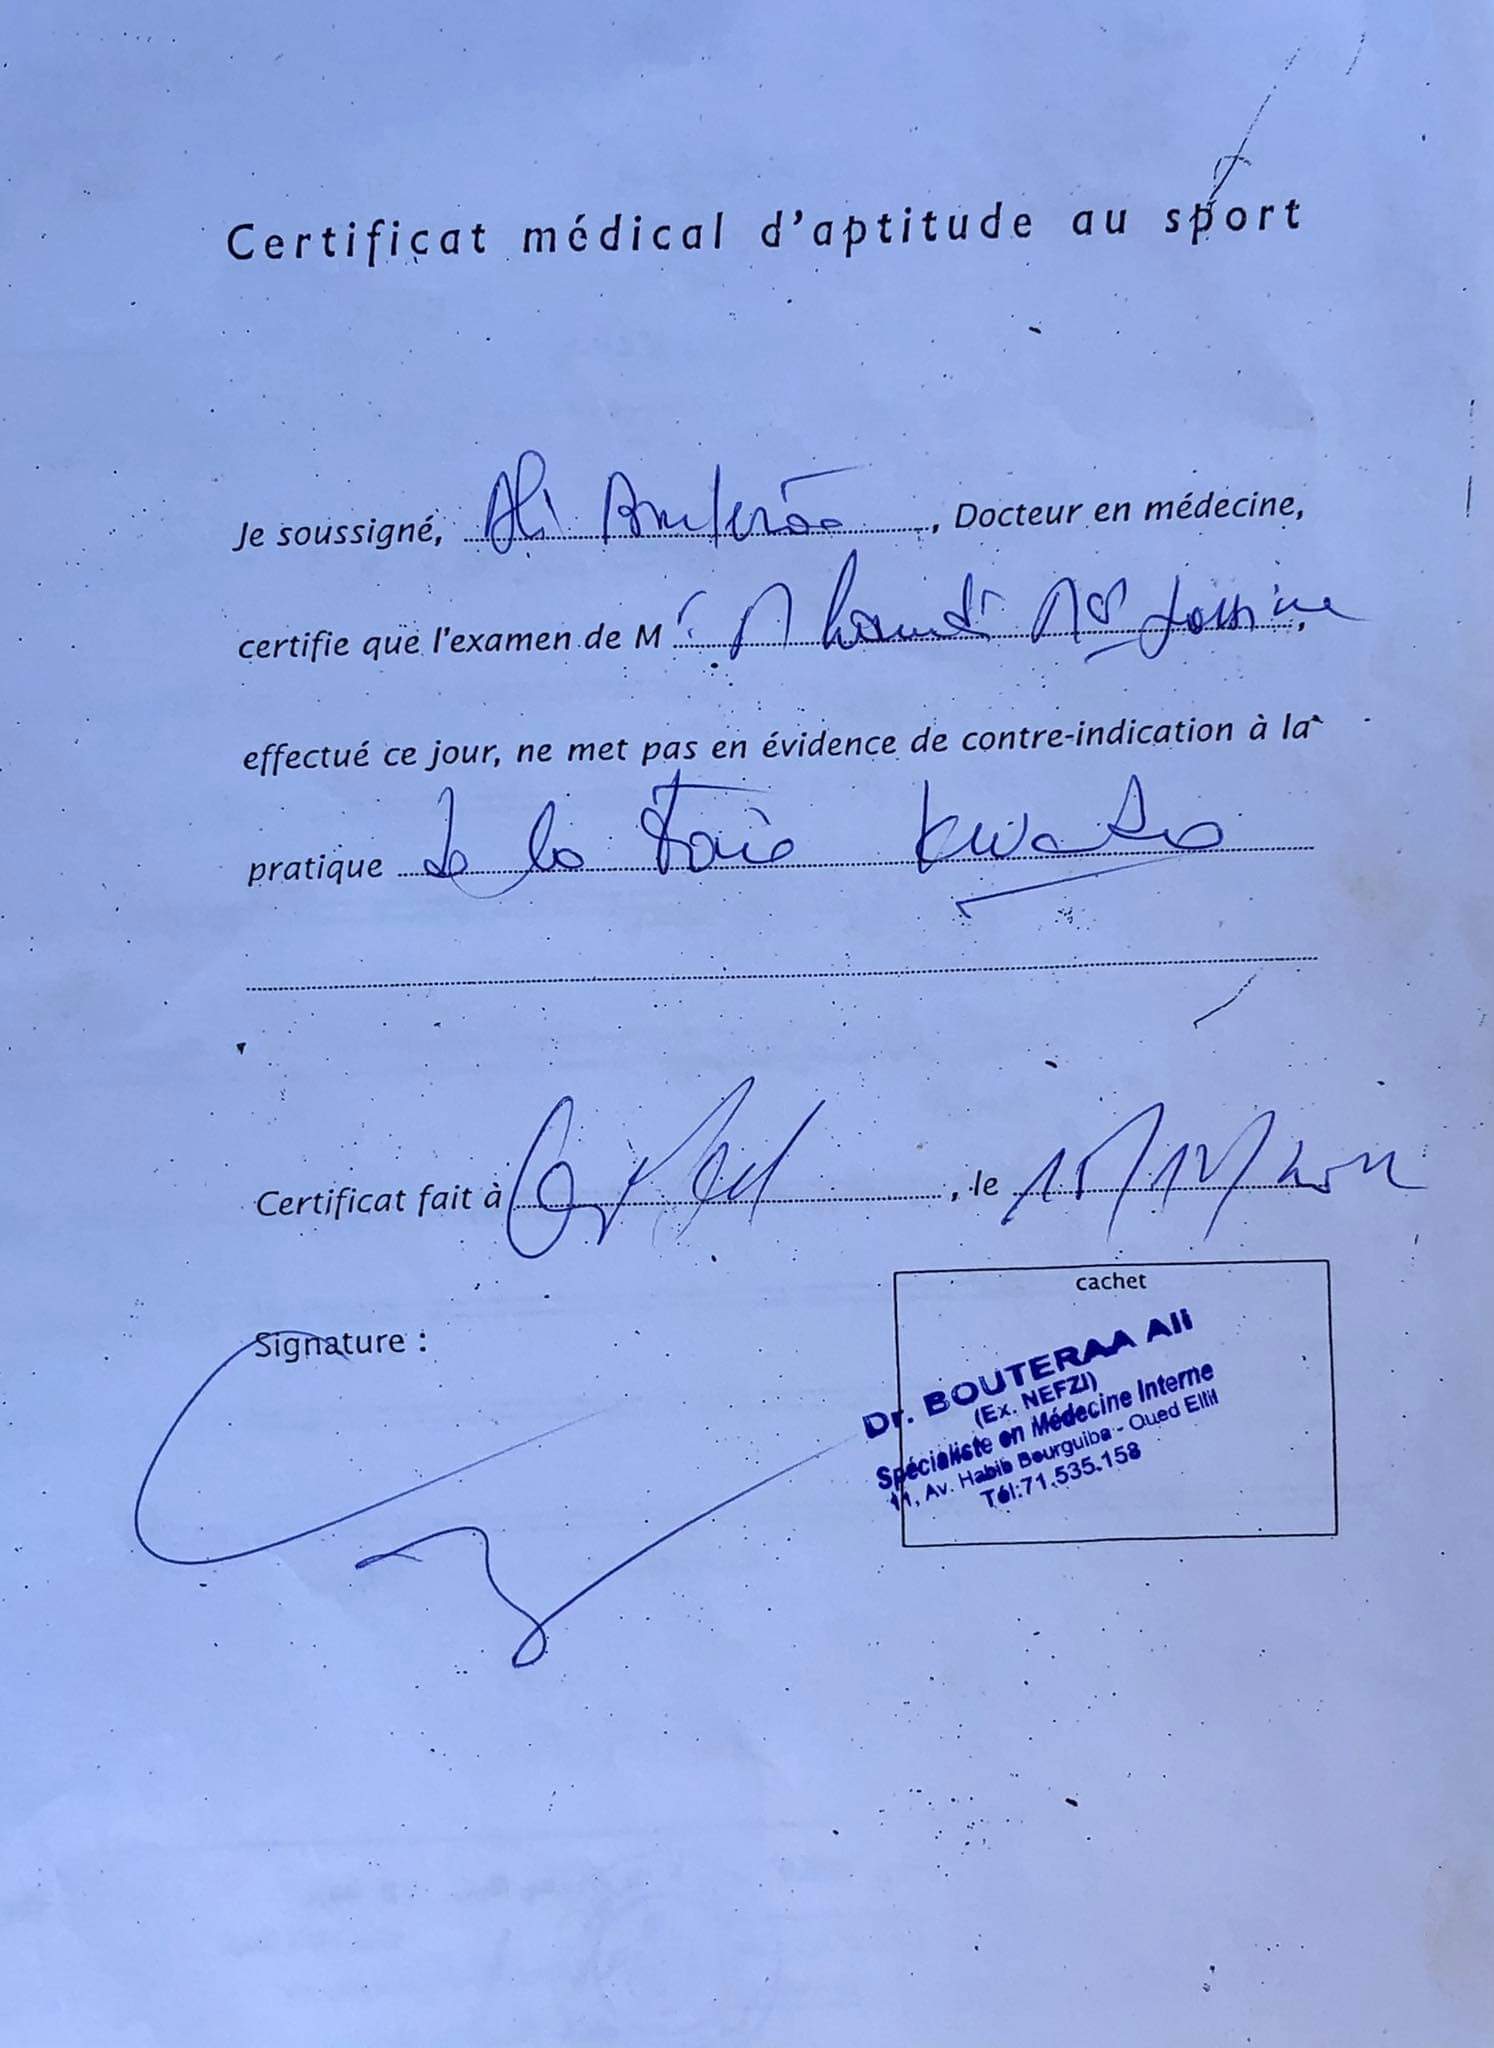 Certificat médical d'aptitude au sport
Je soussigné, Ali Bouteraa, Docteur en médecine,
certifie que l'examen de M
effectué ce jour, ne met pas en évidence de contre-indication à la
pratique de la
Certificat fait à , le 15/12/2022
Signature :
cachet
Dr. BOUTERAA Ali
(Ex. NEFZI)
Spécialiste en Médecine Interne
11, Av. Habib Bourguiba - Oued Ellil
Tél:71.535.158